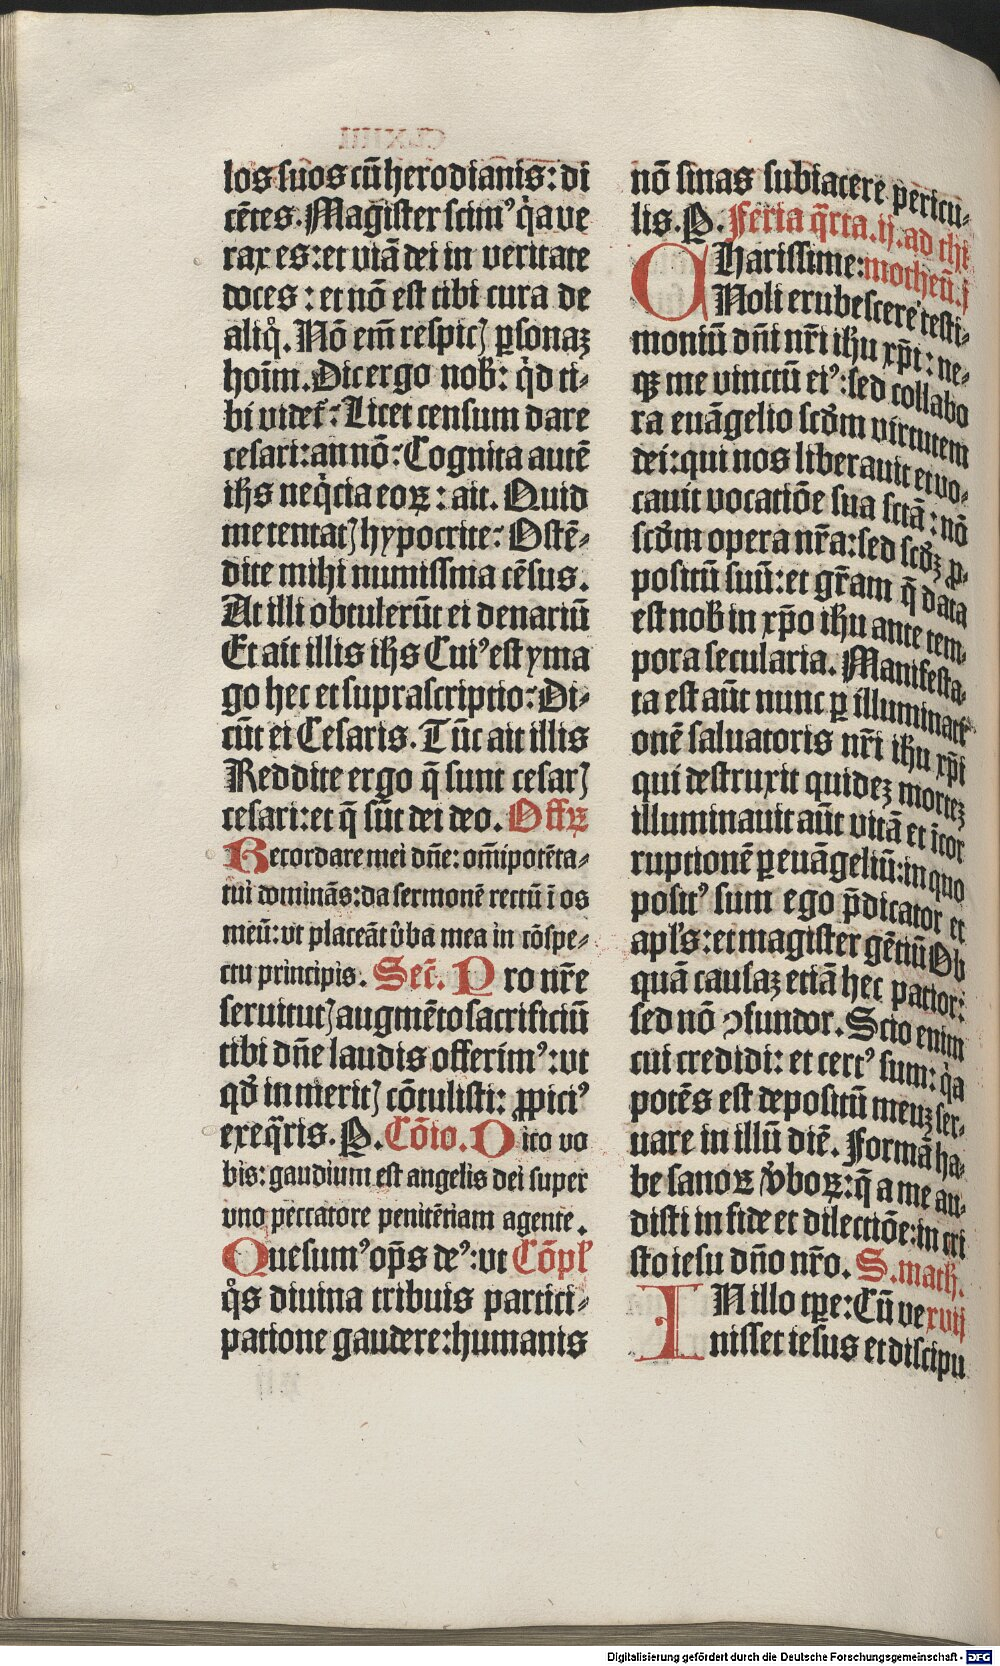 los suos cū herodianis: di
cētes. Magister scimꝰ q̇a ve
rax es: et viā dei in veritate
doces : et nō est tibi cura de
aliq̊. Nō em̄ respicꝭ ꝑsonaꝫ
hoīm. Dic ergo nob̄: q̇d ti⸗
bi videt̄: Licet censum dare
cesari: an nō: Cognita autē
ih̄s neq̇cia eoꝝ : ait. Quid
me tentatꝭ hypocrite: Ostē⸗
dite mihi numissma cēsus.
At illi obtulerūt ei denariū
Et ait illis ih̄s Cuiꝰ est yma
go hec et suprascriptio: Di⸗
cūt ei Cesaris. Tūc ait illis
Reddite ergo q̄ sunt cesarꝭ
cesari: et q̄ sūt dei deo. Offꝝ
Recordare mei dn̄e: om̄ipotēta⸗
tui dominās: da sermonē rectū ī os
meū: vt placeāt v̉ba mea in cōspe⸗
ctu principis. Secr̄. Pro nr̄e
seruitutꝭ augmēto sacrificiū
tibi dn̄e laudis offerimꝰ: vt
qd̓ inmeritꝭ cōtulisti: ꝓpiciꝰ
exeq̄ris. P. Cōio. Dico vo
bis: gaudium est angelis dei super
vno peccatore penitētiam agente.
Quesumꝰ op̄s deꝰ: vt Cōpl̓
q̊s diuina tribuis partici⸗
patione gaudere: humanis
nō sinas subiacere pericu⸗
lis. P. Feria q̄rta. ij. ad thi
Charissime: motheū. i
Noli erubescere testi⸗
moniū dn̄i nr̄i ih̄u xp̄i: ne⸗
qꝫ me vinctū eiꝰ: sed collabo
ra euāgelio scd̓m virtutem
dei: qui nos liberauit et vo⸗
cauit vocatiōe sua sctā: nō
scd̓m opera nr̄a: sed scd̓ꝫ ꝓ⸗
positū suū: et gr̄am q̄ data
est nob̄ in xp̄o ih̄u ante tem⸗
pora secularia. Manifesta⸗
ta est aūt nunc ꝑ illuminati
onē saluatoris nr̄i ih̄u xp̄i
qui destruxit quideꝫ morteꝫ
illuminauit aūt vitā et īcor
ruptionē ꝑ euāgeliū: in quo
positꝰ sum ego p̄dicator et
apl̓s: et magister gētiū Ob
quā causaꝫ etiā hec patior:
sed nō ꝯfundor. Scio enim
cui credidi: et certꝰ sum: q̇a
potēs est depositū meuꝫ ser⸗
uare in illū diē. Formā ha⸗
be sanoꝝ v̉boꝝ: q̄ a me au⸗
disti in fide et dilectiōe: in cri
sto iesu dn̄o nr̄o. S. math̄.
IN illo tꝑe: Cū ve xvij
nisset iesus et discipu
Digitalisierung gefördert durch die Deutsche Forschungsgemeinschaft - DFG